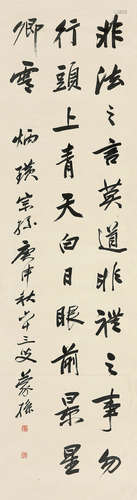 非法之言莫道非禮之事勿
行頭上青天白日眼前景星
卿雲
炳璜宗孫庚申秋七十三叟蒙孫